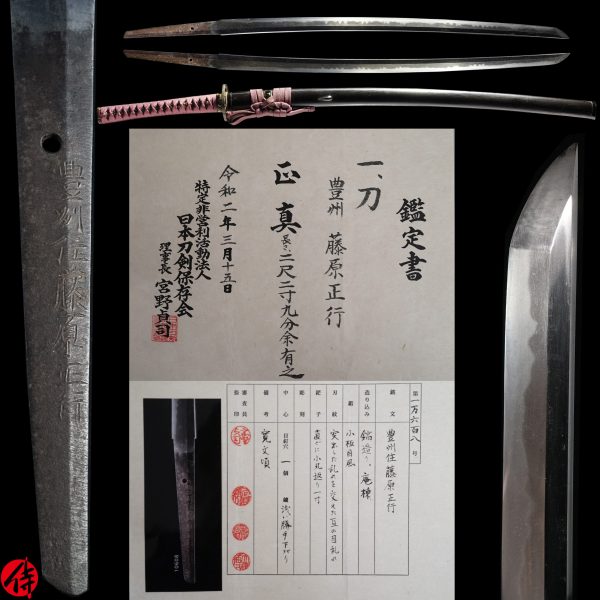 豊州住藤原正行
鑑定書
一、刀
豊州 藤原正行
正真 長さ、二尺二寸九分余有之
令和二年三月十五日
特定非営利活動法人
日本刀剣保存会
理事長 宮野貞司
第一万六百八号
銘文 豊州住藤原正行
造り込み 鎬造り、庵棟
鍛 小板目肌
刃紋
鋩子 直ぐに小丸返り一寸
彫刻
中心 目釘穴 一個 鑢 浅い勝手下がり
備考 寛文頃
審査員
侍